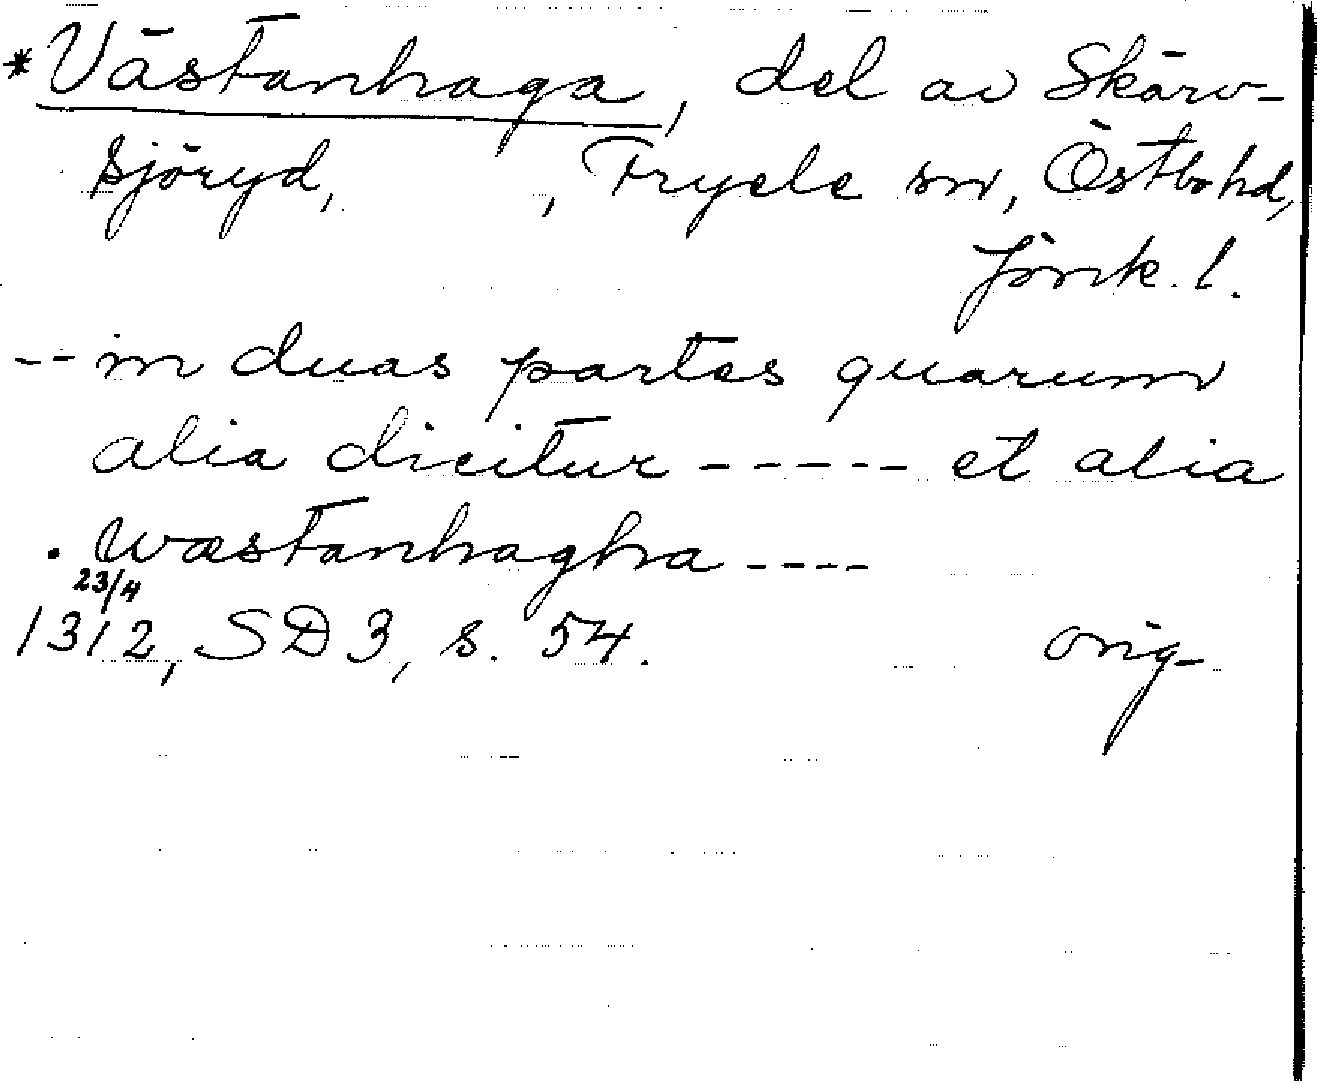 *Västanhaga, del av Skärv-
sjöryd,          , Tryele sn, Östbo hd,
Jönk. l.
-- in duas partes quarum
alia dicitur ----- et alia
. wæstanhagha ----
23/4
1312, SD 3, s. 54.          orig-